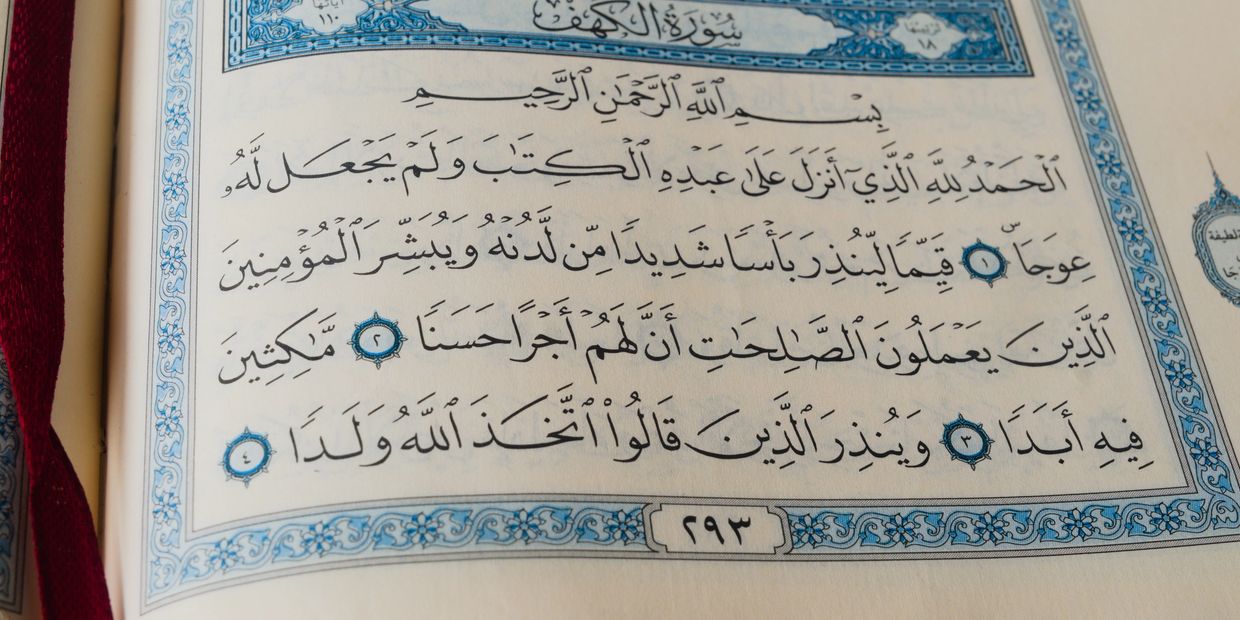 آياتها ١١٠ سُورَةُ الكَهْفِ ترتيبها ١٨
بِسْمِ ٱللَّهِ ٱلرَّحْمَٰنِ ٱلرَّحِيمِ
ٱلْحَمْدُ لِلَّهِ ٱلَّذِىٓ أَنزَلَ عَلَىٰ عَبْدِهِ ٱلْكِتَٰبَ وَلَمْ يَجْعَل لَّهُۥ
عِوَجَاۜ ١ قَيِّمًا لِّيُنذِرَ بَأْسًا شَدِيدًا مِّن لَّدُنْهُ وَيُبَشِّرَ ٱلْمُؤْمِنِينَ
ٱلَّذِينَ يَعْمَلُونَ ٱلصَّٰلِحَٰتِ أَنَّ لَهُمْ أَجْرًا حَسَنًا ٢ مَّٰكِثِينَ
فِيهِ أَبَدًا ٣ وَيُنذِرَ ٱلَّذِينَ قَالُوا۟ ٱتَّخَذَ ٱللَّهُ وَلَدًا ٤
٢٩٣